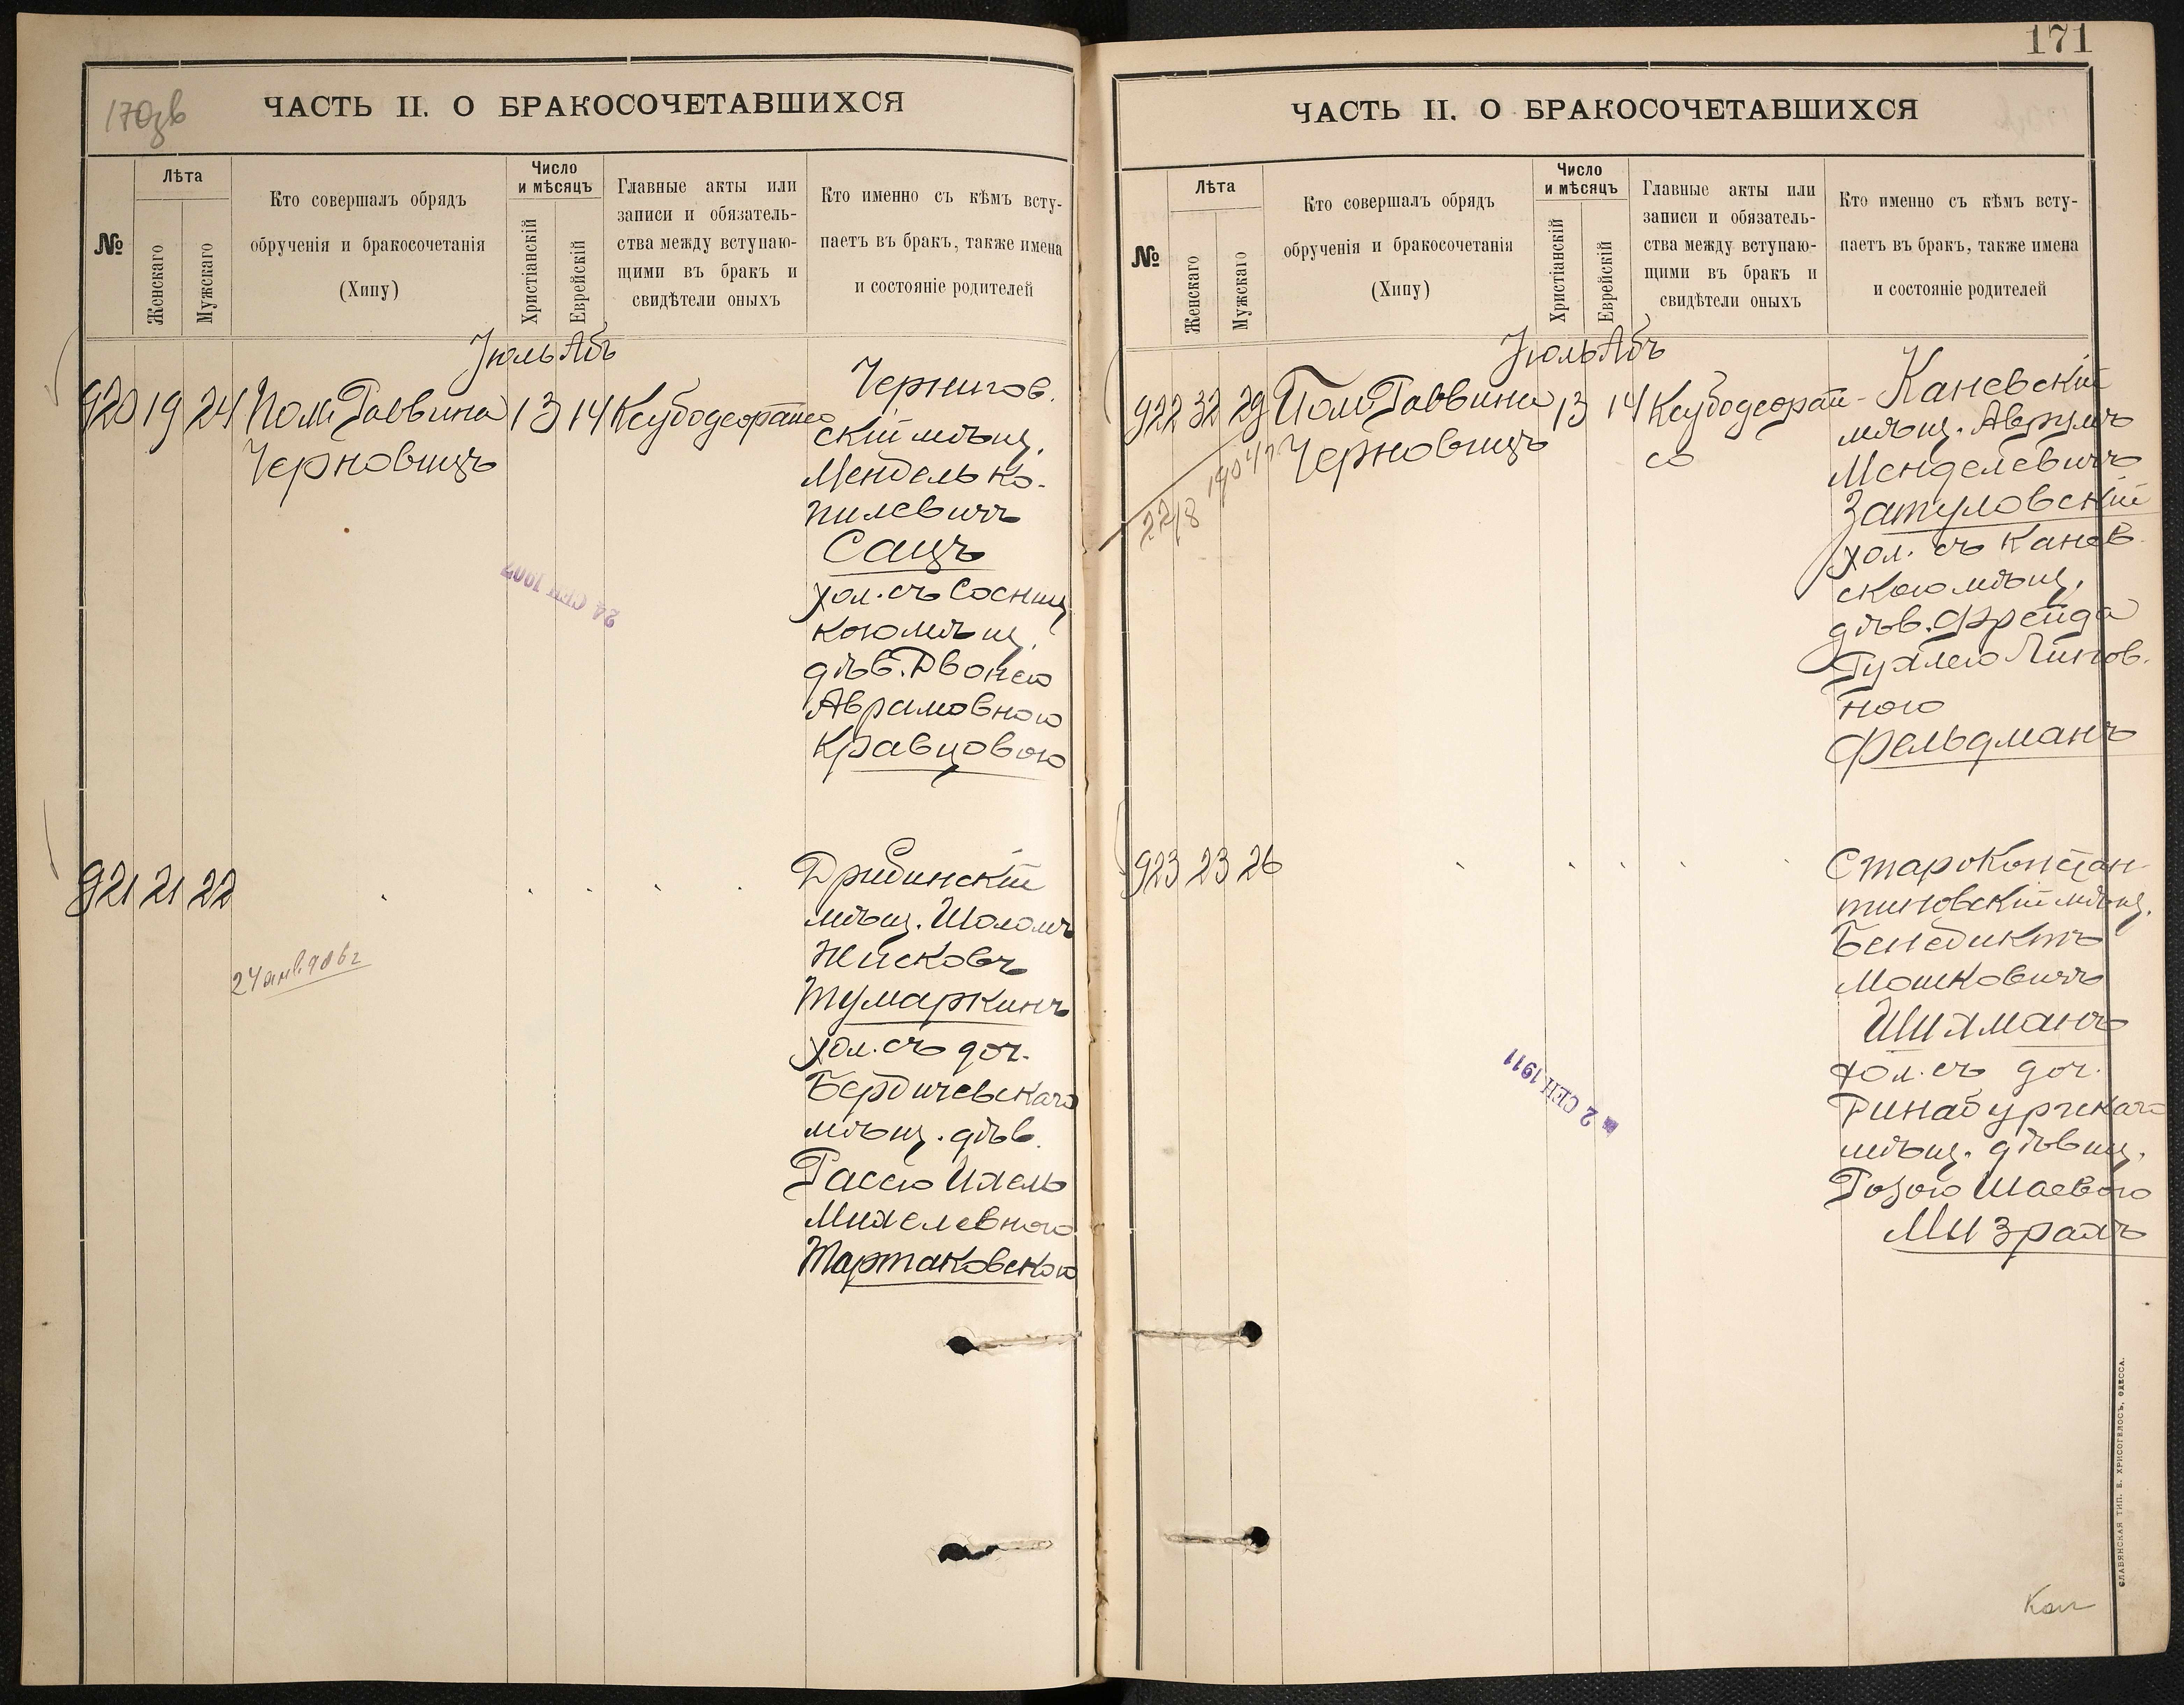 170зв
ЧАСТЬ II. О БРАКОСОЧЕТАВШИХСЯ
№
Лѣта
Женскаго
Мужскаго
Кто совершалъ обрядъ
обрученія и бракосочетанія
(Хипу)
Число
и мѣсяцъ
Христіанскій
Еврейскій
Главные акты или
записи и обязатель-
ства между вступаю-
щими въ бракъ и
свидѣтели оныхъ
Кто именно съ кѣмъ всту-
паетъ въ бракъ, также имена
и состояніе родителей
Іюль Абъ
920 19 24 Пом. Раввина 13 14 Ксубодеорайсо
Черновицъ
Чернигов.
скій мѣщ.
Мендель Ко-
пилевичъ
Сацъ
хол. съ Сосниц
кою мѣщ.
дѣв. Двонею
Аврамовною
Кравцовою
24 СЕН 1907
921 21 22
24 янв 906 г
Дрибинскій
мѣщ. Шоломъ
Ицковъ
Тумаркинъ
хол. съ доч.
Бердичевскаго
мѣщ. дѣв.
Рассею Ихель
Михелевною
Тартаковскою
171
ЧАСТЬ II. О БРАКОСОЧЕТАВШИХСЯ
№
Лѣта
Женскаго
Мужскаго
Кто совершалъ обрядъ
обрученія и бракосочетанія
(Хипу)
Число
и мѣсяцъ
Христіанскій
Еврейскій
Главные акты или
записи и обязатель-
ства между вступаю-
щими въ бракъ и
свидѣтели оныхъ
Кто именно съ кѣмъ всту-
паетъ въ бракъ, также имена
и состояніе родителей
Іюль Абъ
922 32 29 Пом. Раввина 13 14 Ксубодеорай-
Черновицъ со
22/8 1904 г
Каневскій
мѣщ. Аврумъ
Менделевичъ
Затуловскій
хол. съ Канев
скою мѣщ.
дѣв. Фрейда
Рухлею Пинхов.
ною
Фельдманъ
923 23 26
Староконстан
тиновскій мѣщ.
Бенедиктъ
Мошковичъ
Шихманъ
хол. съ доч.
Динабургскаго
мѣщ. дѣвиц.
Розою Шаевою
Мизрахъ
2 СЕН 1911
СЛАВЯНСКАЯ ТИП. Е. ХРИСОГЕЛОСЪ, ОДЕССА.